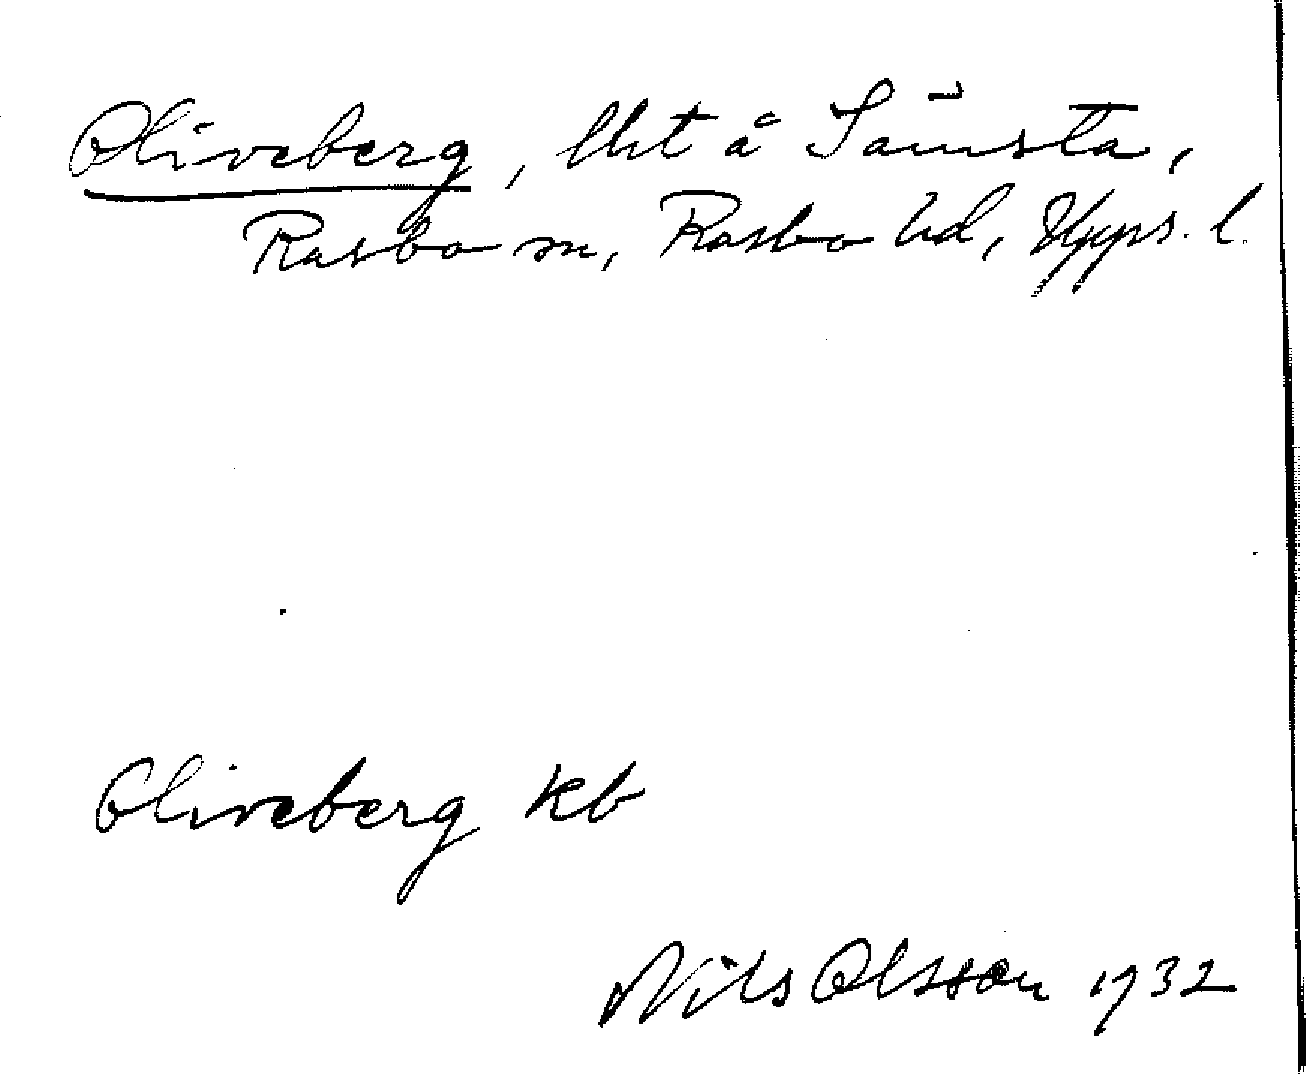 Oliveberg, lht å Saūsta,
Rasbo sn, Rasbo hd, Upps. l.
Oliveberg kb
Nils Olsson 1932